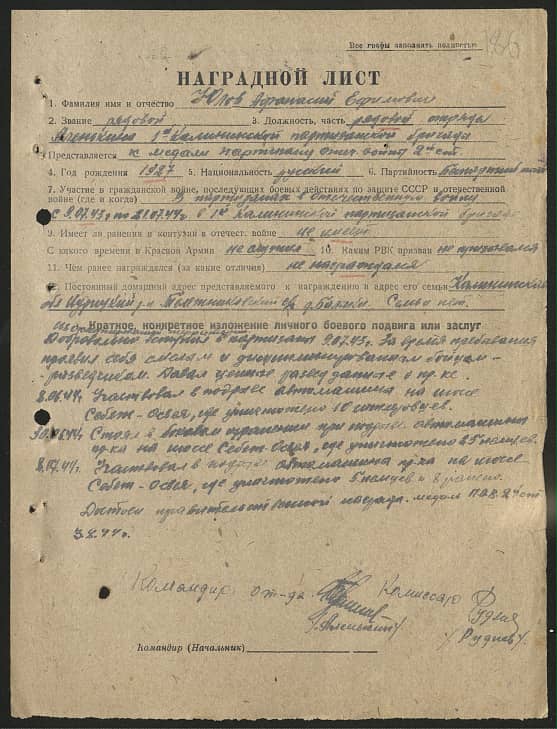 Все графы заполнять полностью
НАГРАДНОЙ ЛИСТ
1. Фамилия имя и отчество Юлов Афанасий Ефимович
2. Звание рядовой 3. Должность, часть рядовой отряда
1й Калининской партизанской бригады
Представляется к медали партизану отеч. войны 2й ст.
4. Год рождения 1927 5. Национальность русский 6. Партийность
7. Участие в гражданской войне, последующих боевых действиях по защите СССР и отечественной
войне (где и когда) В партизанах в Отечественную войну
с 9.07.43г. по 21.07.44г. в 1й Калининской партизанской бригаде
9. Имеет ли ранения и контузии в отечест. войне не имеет
С какого времени в Красной Армии не служил 10. Каким РВК призван не призывался
11. Чем ранее награждался (за какие отличия) не награждался
Постоянный домашний адрес представляемого к награждению и адрес его семьи Калининская
обл. р-н с/с д. Семьи нет.
Краткое, конкретное изложение личного боевого подвига или заслуг
Добровольно вступил в партизаны 9.07.43г. За время пребывания
проявил себя смелым и дисциплинированным бойцом-
разведчиком. Давал ценные разведданные о пр-ке.
8.06.44г. Участвовал в подрыве автомашины на шоссе
Себеж-Освея, где уничтожено 10 немцев.
Стоял в боковом охранении при подрыве автомашины
пр-ка на шоссе Себеж-Освея, где уничтожено 5 немцев.
8.07.44г. Участвовал в подрыве автомашины пр-ка на шоссе
Себеж-Освея, где уничтожено 5 немцев и 8 ранено.
Достоин правительственной награды. медаль П.О.В. 2й ст.
3.8.44г.
Командир от-да Комиссар
/Руднев/
Командир (Начальник)